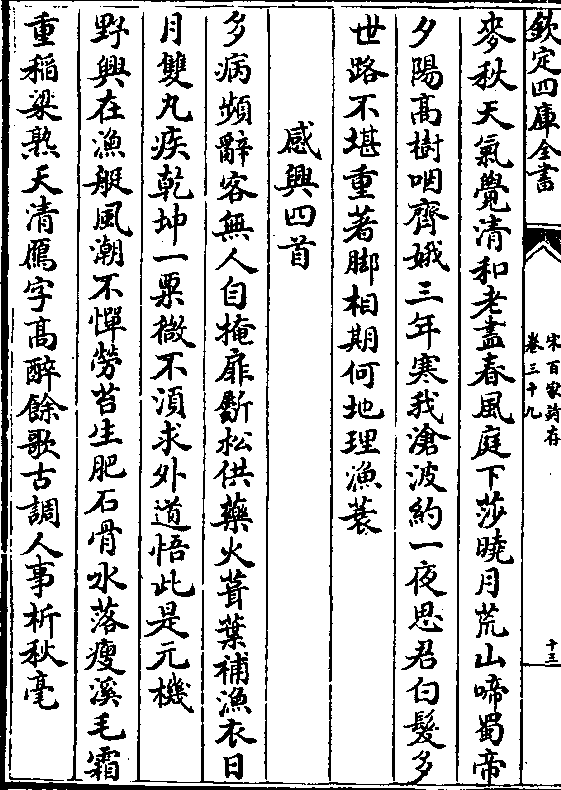 欽定四庫全書
宋百家詩存
卷三十九
十三
麥秋天氣覺清和老盡春風庭下莎曉月荒山啼蜀帝
夕陽高樹咽齊娥三年寒我滄波約一夜思君白髮多
世路不堪重著脚相期何地理漁蓑
感興四首
多病頻辭客無人自掩扉斲松供藥火葺葉補漁衣日
月雙丸疾乾坤一粟微不須求外道悟此是元機
野興在漁艇風潮不憚勞苔生肥石骨水落瘦溪毛霜
重稻粱熟天清鴈字高醉餘歌古調人事析秋毫